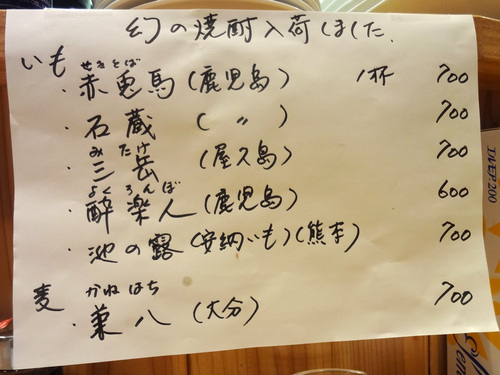 幻の焼酎入荷しました.
いも せきとば
・赤兎馬(鹿児島) 1杯 700
・石蔵 ( 〃 ) 700
みたけ
・三岳 (屋久島) 700
よくろんぼ
・酔楽人(鹿児島) 600
・池の露(安納いも)(熊本) 700
麦 かねはち 700
・兼八 (大分)